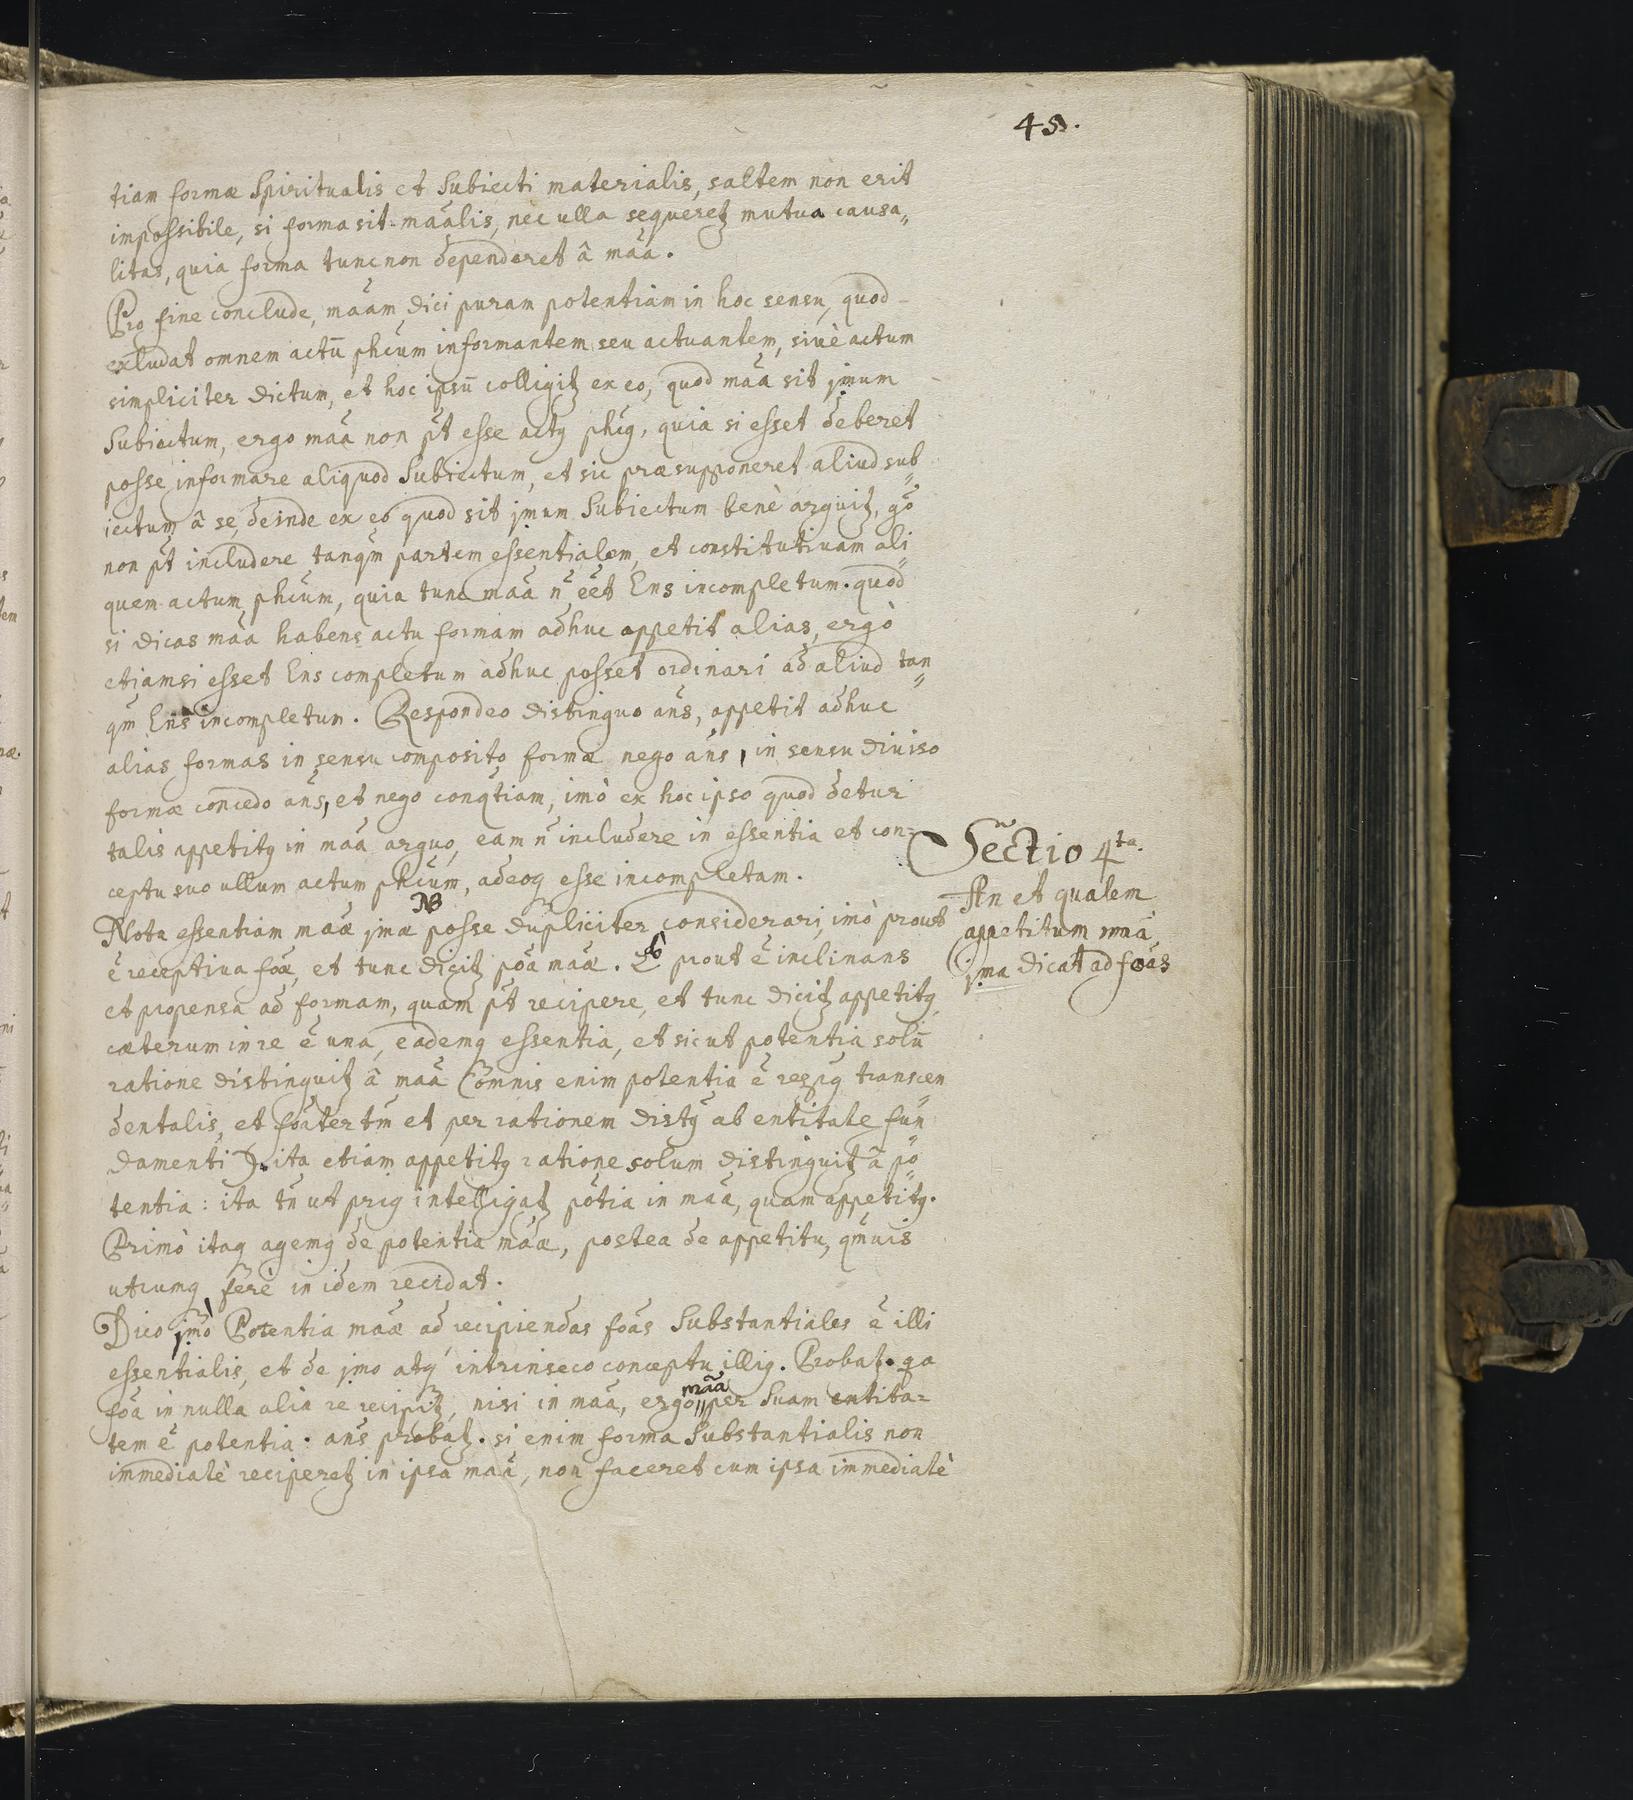 45.
tiam formæ Spiritualis et Subiecti materialis, saltem non erit
impossibile, si forma sit maãlis, nec ulla sequeretꝫ mutua causa„
litas, quia forma tunc non dependeret â maã.
Pro fine conclude, maãm dici puram potentiam in hoc sensu, quod
excludat omnem actū phcũm informantem seu actuantem, siuè actum
simpliciter dictum, et hoc ipsū colligitꝫ ex eo, quod maã sit jmum
Subiectum, ergo maã non pt̃ esse actꝯ phcꝯ, quia si esset deberet
posse informare aliquod Subiectum, et sic præsupponeret aliud sub„
iectum â se, deinde ex eo quod sit jmum Subiectum benè arguitꝫ, gõ
non pt̃ includere tanqm̃ partem essentialem, et constitutiuam ali„
quem actum phcũm, quia tunc maã ñ eẽt Ens incompletum. quod
si dicas maã habens actu formam adhuc appetit alias, ergò
etiamsi esset Ens completum adhuc posset ordinari ad aliud tan„
qm̃ Ens incompletum. Respondeo distinguo añs, appetit adhuc
alias formas in sensu composito formæ nego añs, in sensu diuiso
formæ concedo añs, et nego conqtĩam, imò ex hoc ipso quod detur
talis appetitꝯ in maã arguo, eam ñ includere in essentia et con=
ceptu suo ullum actum phcũm, adeoq esse incompletam.
Sectio 4ta.
An et qualem
appetitum maã
jma dicat ad foãs
NB
Nota essentiam maæ̃ jmæ posse dupliciter considerari, imò prout
ẽ receptiua foæ̃, et tunc dicitꝫ poã maæ̃. 2dò prout ẽ inclinans
et propensa ad formam, quam pt̃ recipere, et tunc dicitꝫ appetitꝯ,
cæterum in re ẽ una, eademq essentia, et sicut potentia solū
ratione distinguitꝫ â maã (omnis enim potentia ẽ respꝯ transcen„
dentalis, et foãter tm̃ et per rationem distꝯ ab entitate fun„
damenti). ita etiam appetitꝯ ratione solum distinguitꝫ â po„
tentia: ita tñ ut priꝯ intelligatꝫ potĩa in maã, quam appetitꝯ.
Primò itaq agemꝯ de potentia maæ̃, postea de appetitu, qm̃uis
utrumq ferè in idem recidat.
Dico jmò Potentia maæ̃ ad recipiendas foãs Substantiales ẽ illi
essentialis, et de jmo atq intrinseco conceptu illiꝯ. Probatꝫ. qa
foã in nulla alia re recipitꝫ, nisi in maã, ergo maã per Suam entita=
tem ẽ potentia. añs probatꝫ. si enim forma Substantialis non
immediatè reciperetꝫ in ipsa maã, non faceret cum ipsa immediatè